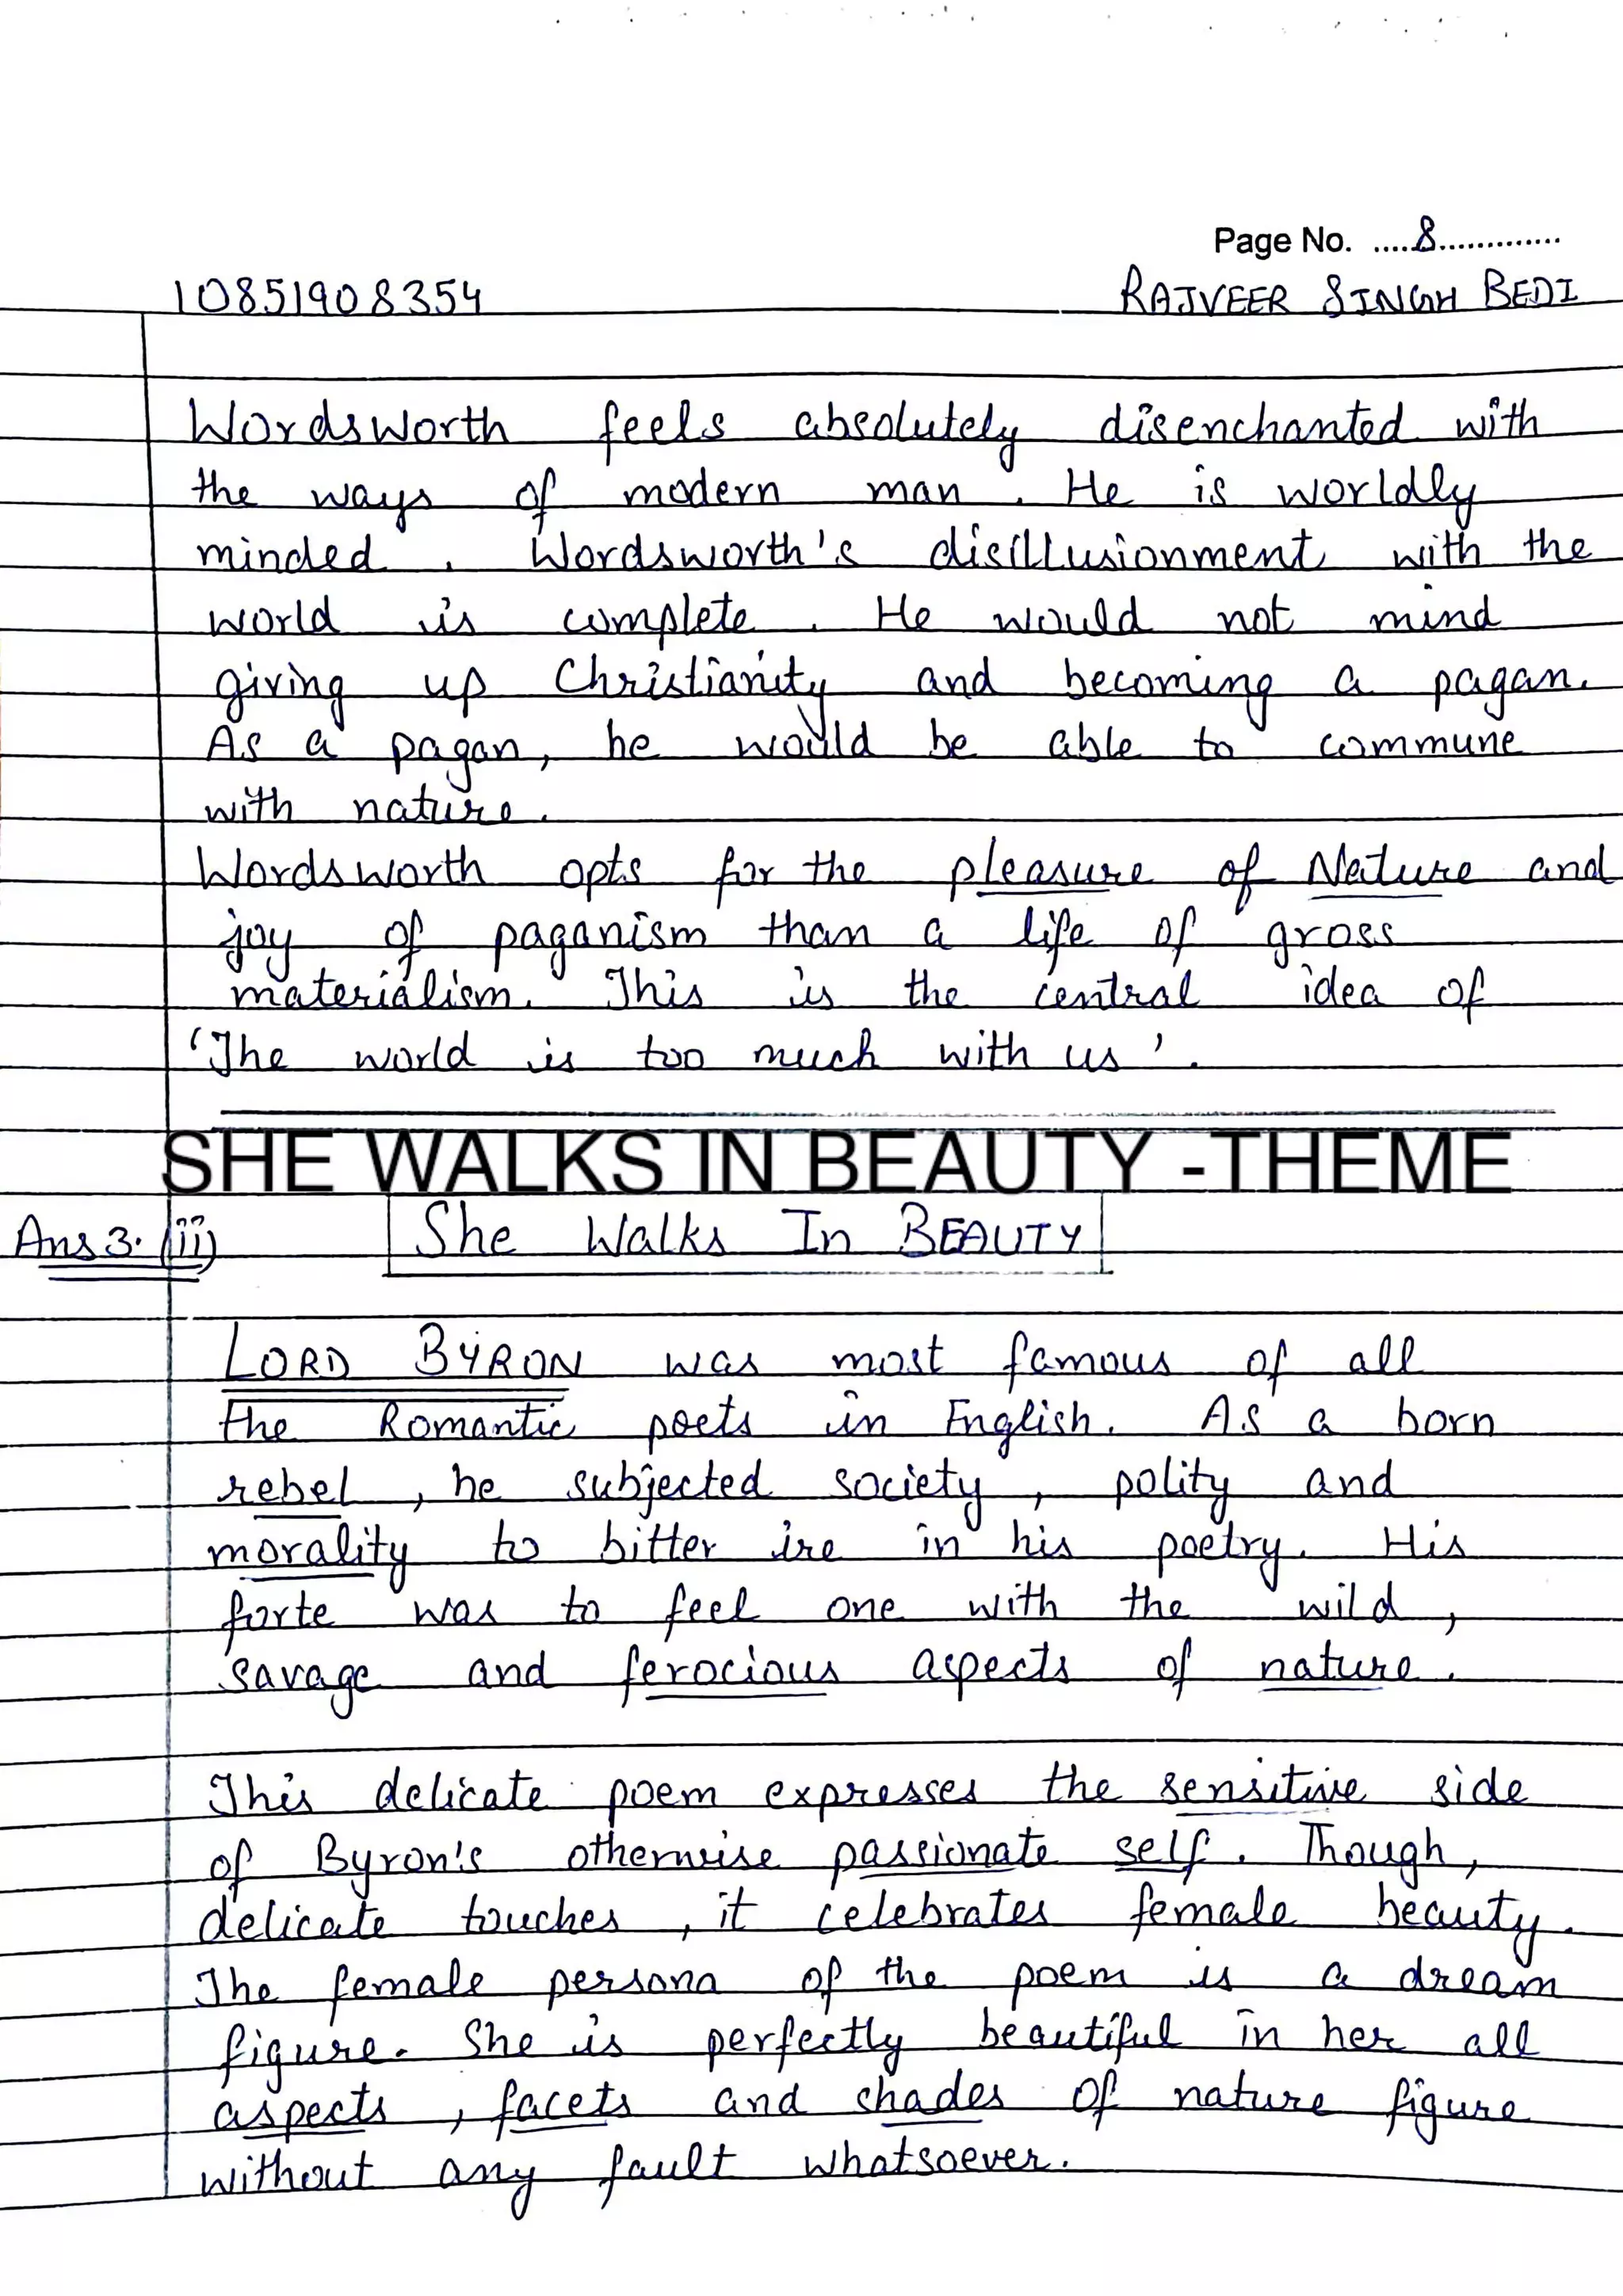 Page No. .....8..............
10851908354
RAJVEER SINGH BEDI
Wordsworth feels absolutely disenchanted with
the ways of modern man. He is worldly
minded. Wordsworth's disillusionment with the
world is complete. He would not mind
giving up Christianity and becoming a pagan.
As a pagan, he would be able to commune
with nature.
Wordsworth opts for the pleasure of Nature and
joy of paganism than a life of gross
materialism. This is the central idea of
'The world is too much with us'.
SHE WALKS IN BEAUTY -THEME
Ans 3. (ii) She Walks In BEAUTY
LORD BYRON was most famous of all
the Romantic poets in English. As a born
rebel, he subjected society, polity and
morality to bitter ire in his poetry. His
forte was to feel one with the wild,
savage and ferocious aspects of nature.
This delicate poem expresses the sensitive side
of Byron's otherwise passionate self. Though,
delicate touches, it celebrates female beauty.
The female persona of the poem is a dream
figure. She is perfectly beautiful in her all
aspects, facets and shades of nature figure
without any fault whatsoever.